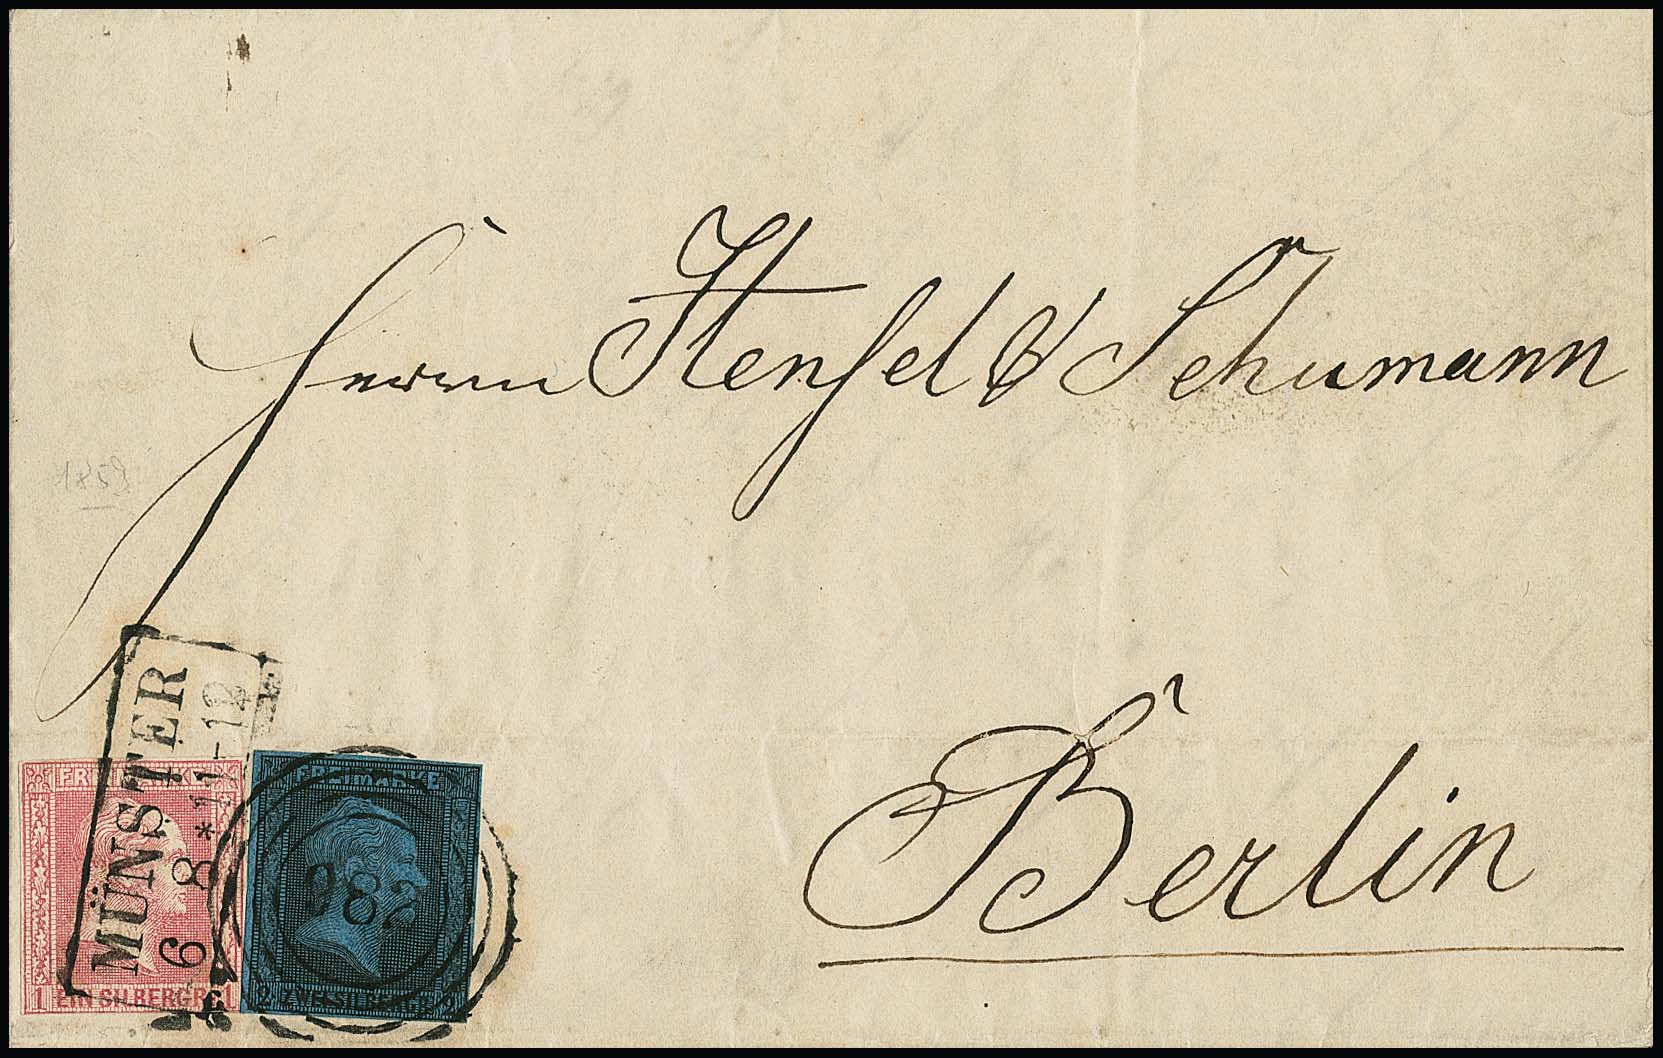 Herrn Stenfel & Schumann
Berlin
MÜNSTER
6 8 * 11-12
FREIMARKE
1 EIN SILBERGR. 1
FREIMARKE
982
2 ZWEI SILBERGR. 2